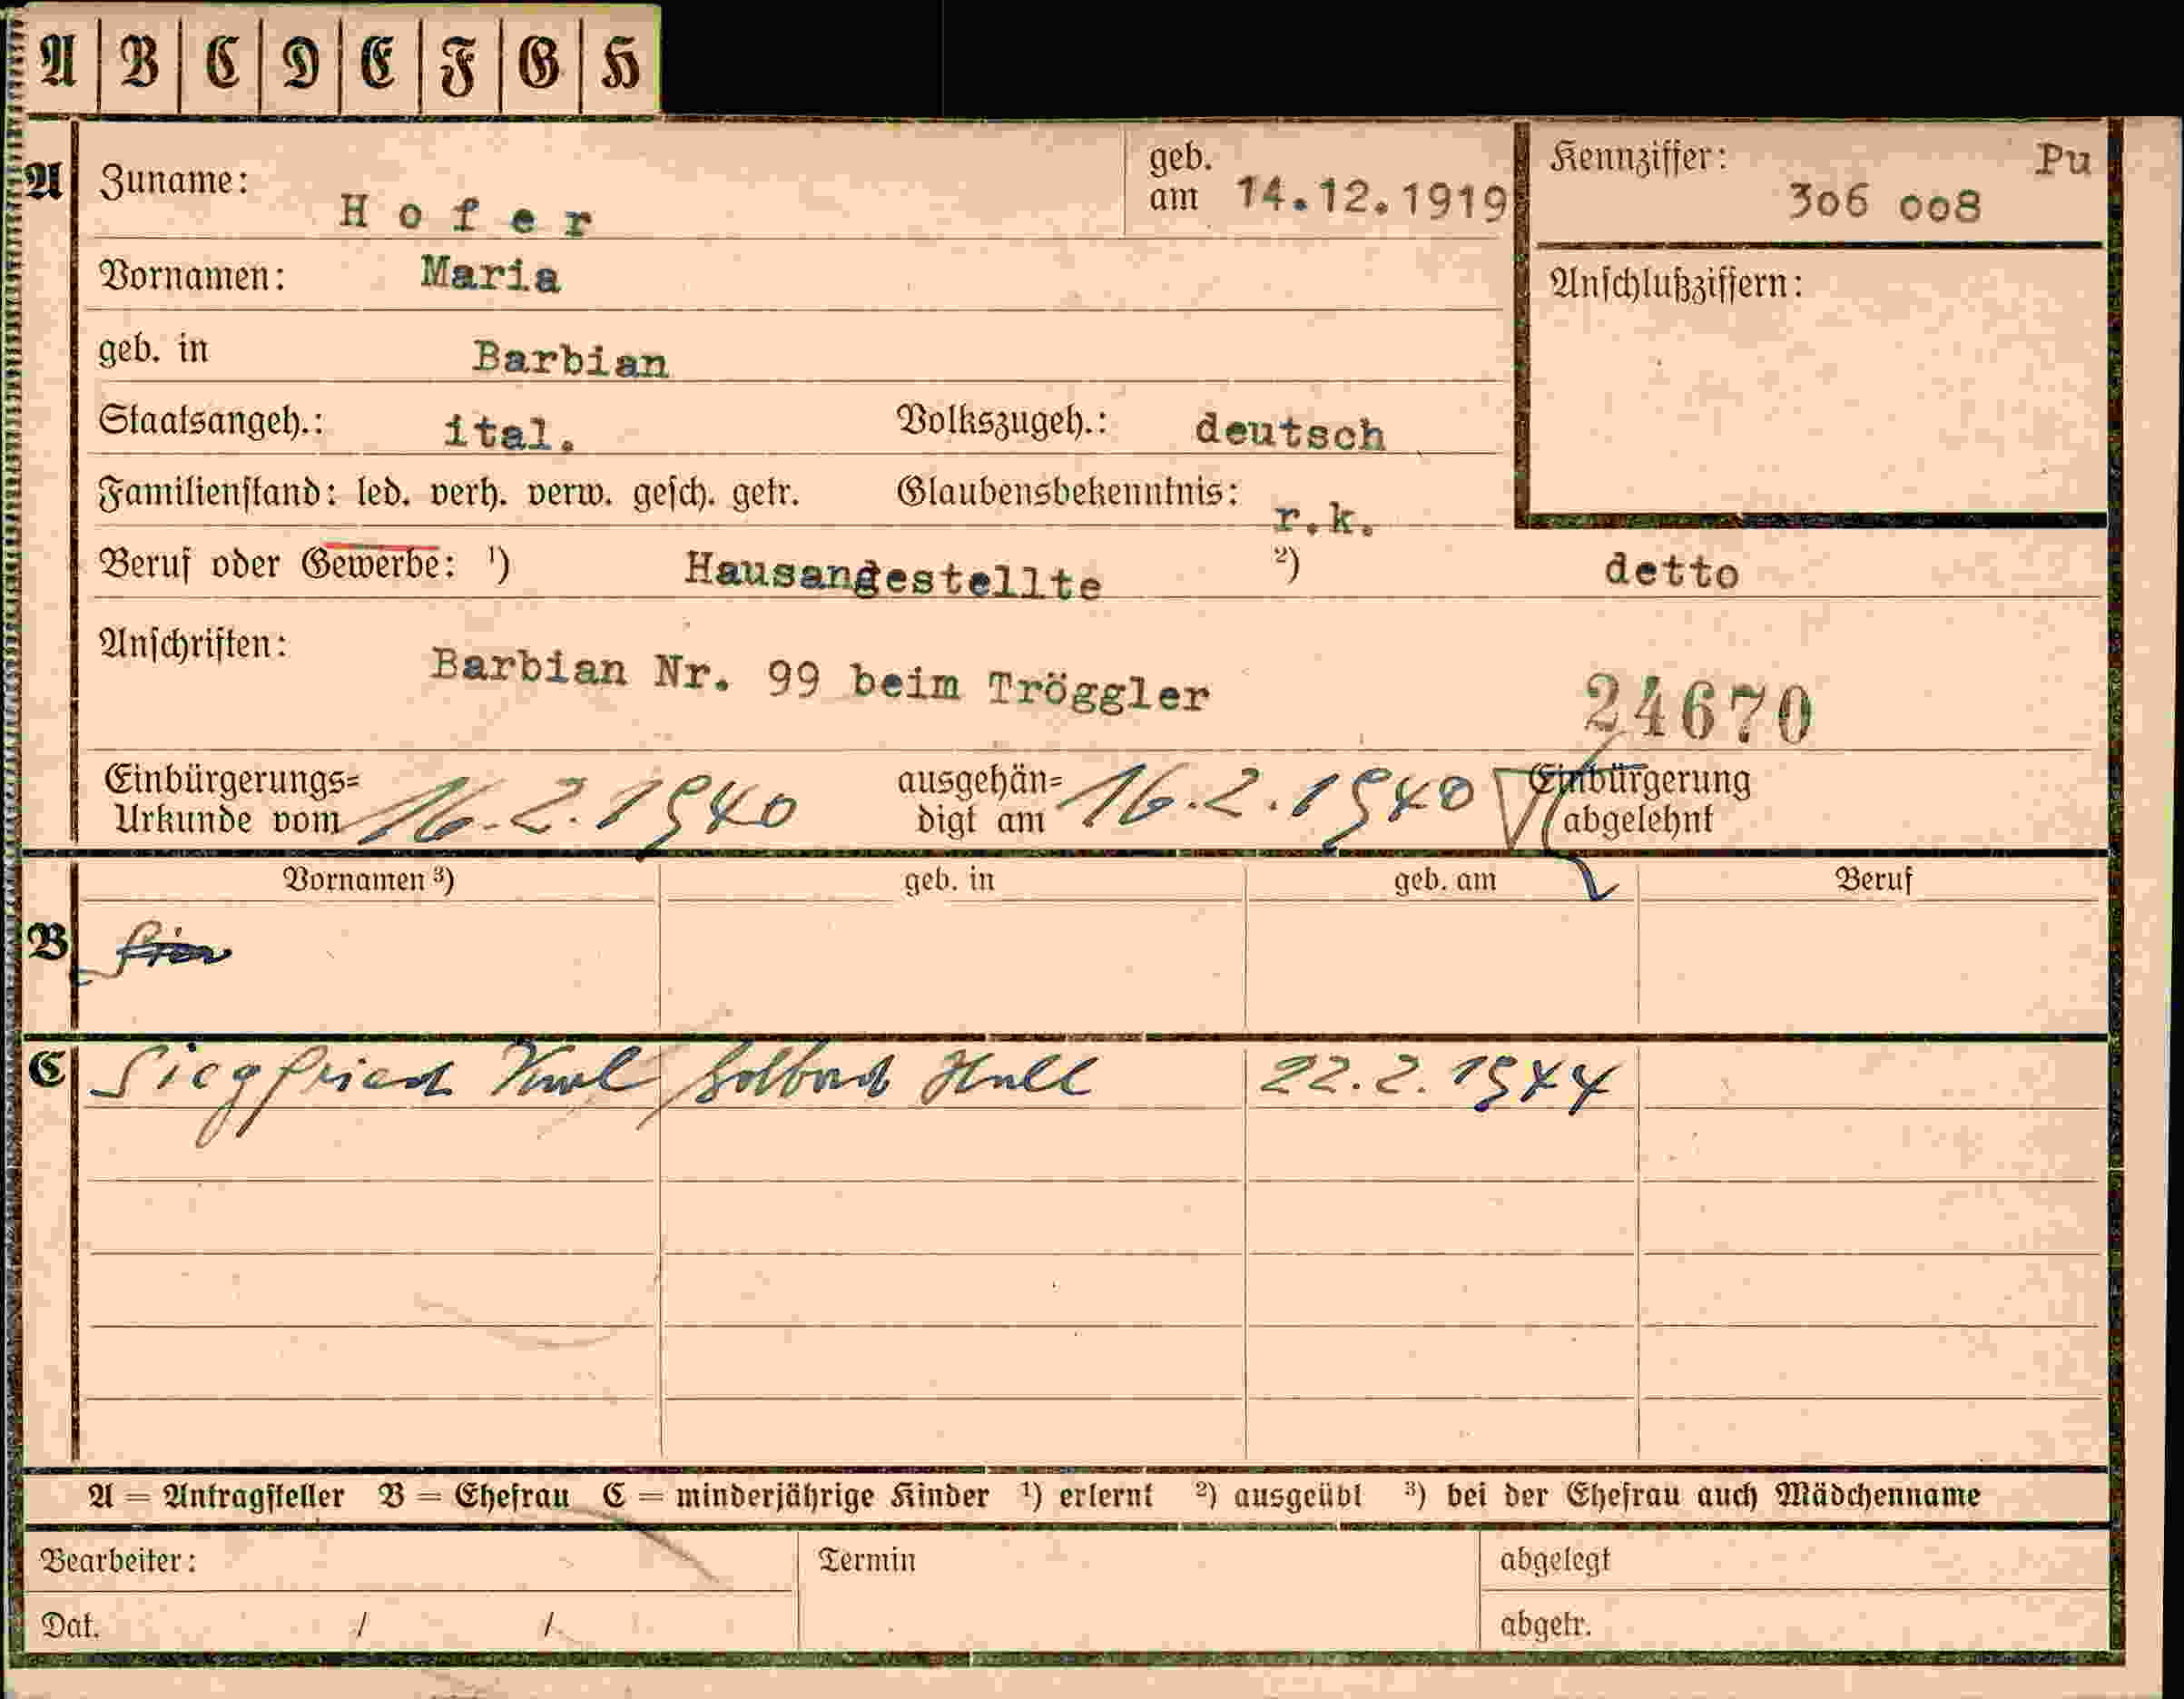 A B C D E F G H
A Zuname: Hofer geb. am 14.12.1919 Kennziffer: Pu 306 008
Vornamen: Maria Anschlußziffern:
geb. in Barbian
Staatsangeh.: ital. Volkszugeh.: deutsch
Familienstand: led. verh. verw. gesch. getr. Glaubensbekenntnis: r.k.
Beruf oder Gewerbe: ¹) Hausangestellte ²) detto
Anschriften: Barbian Nr. 99 beim Tröggler 24670
Einbürgerungs= ausgehän= Einbürgerung
Urkunde vom 16.2.1940 digt am 16.2.1940 abgelehnt
Vornamen ³) geb. in geb. am Beruf
B
C Siegfried Karl Solbad Hall 22.2.1944
A = Antragsteller B = Ehefrau C = minderjährige Kinder ¹) erlernt ²) ausgeübt ³) bei der Ehefrau auch Mädchenname
Bearbeiter: Termin abgelegt
Dat. / / abgetr.